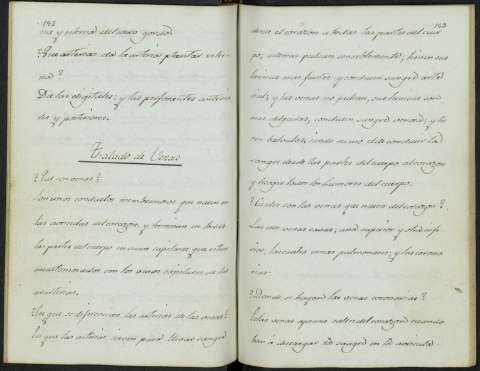 142
na y externa del arco
¿Que arterias da la arteria plantar exter-
na?
Da las digitales; y las perforantes anterio-
res y posteriores.
Tratado de Venas
¿Que son venas?
Son unos conductos membranosos que nacen en
las aurículas del corazon, y terminan en todas
las partes del cuerpo en vasos capilares, que estan
con los vasos capilares de las
arterias.
¿En que se diferencian las arterias de las venas?
En que las arterias sirven para llevar sangre
143
desde el corazon a todas las partes del cuer-
po; ademas pulsan sensiblemente; tienen sus
tunicas mas fuertes y conducen sangre arte-
rial; y las venas no pulsan, sus tunicas son
mas delgadas, conducen sangre venosa, y tie-
nen balbulas; siendo su uso el de conducir la
sangre desde las partes del cuerpo al corazon
y recoger los humores del cuerpo.
¿Cuales son las venas que nacen del corazon?
Las dos venas cavas; una superior y otra infe-
rior, las cuatro venas pulmonares; y las corona-
rias.
¿Donde se hayan las venas coronarias?
Estas venas apenas salen del corazon cuando
ban a descargar la sangre en la aurícula